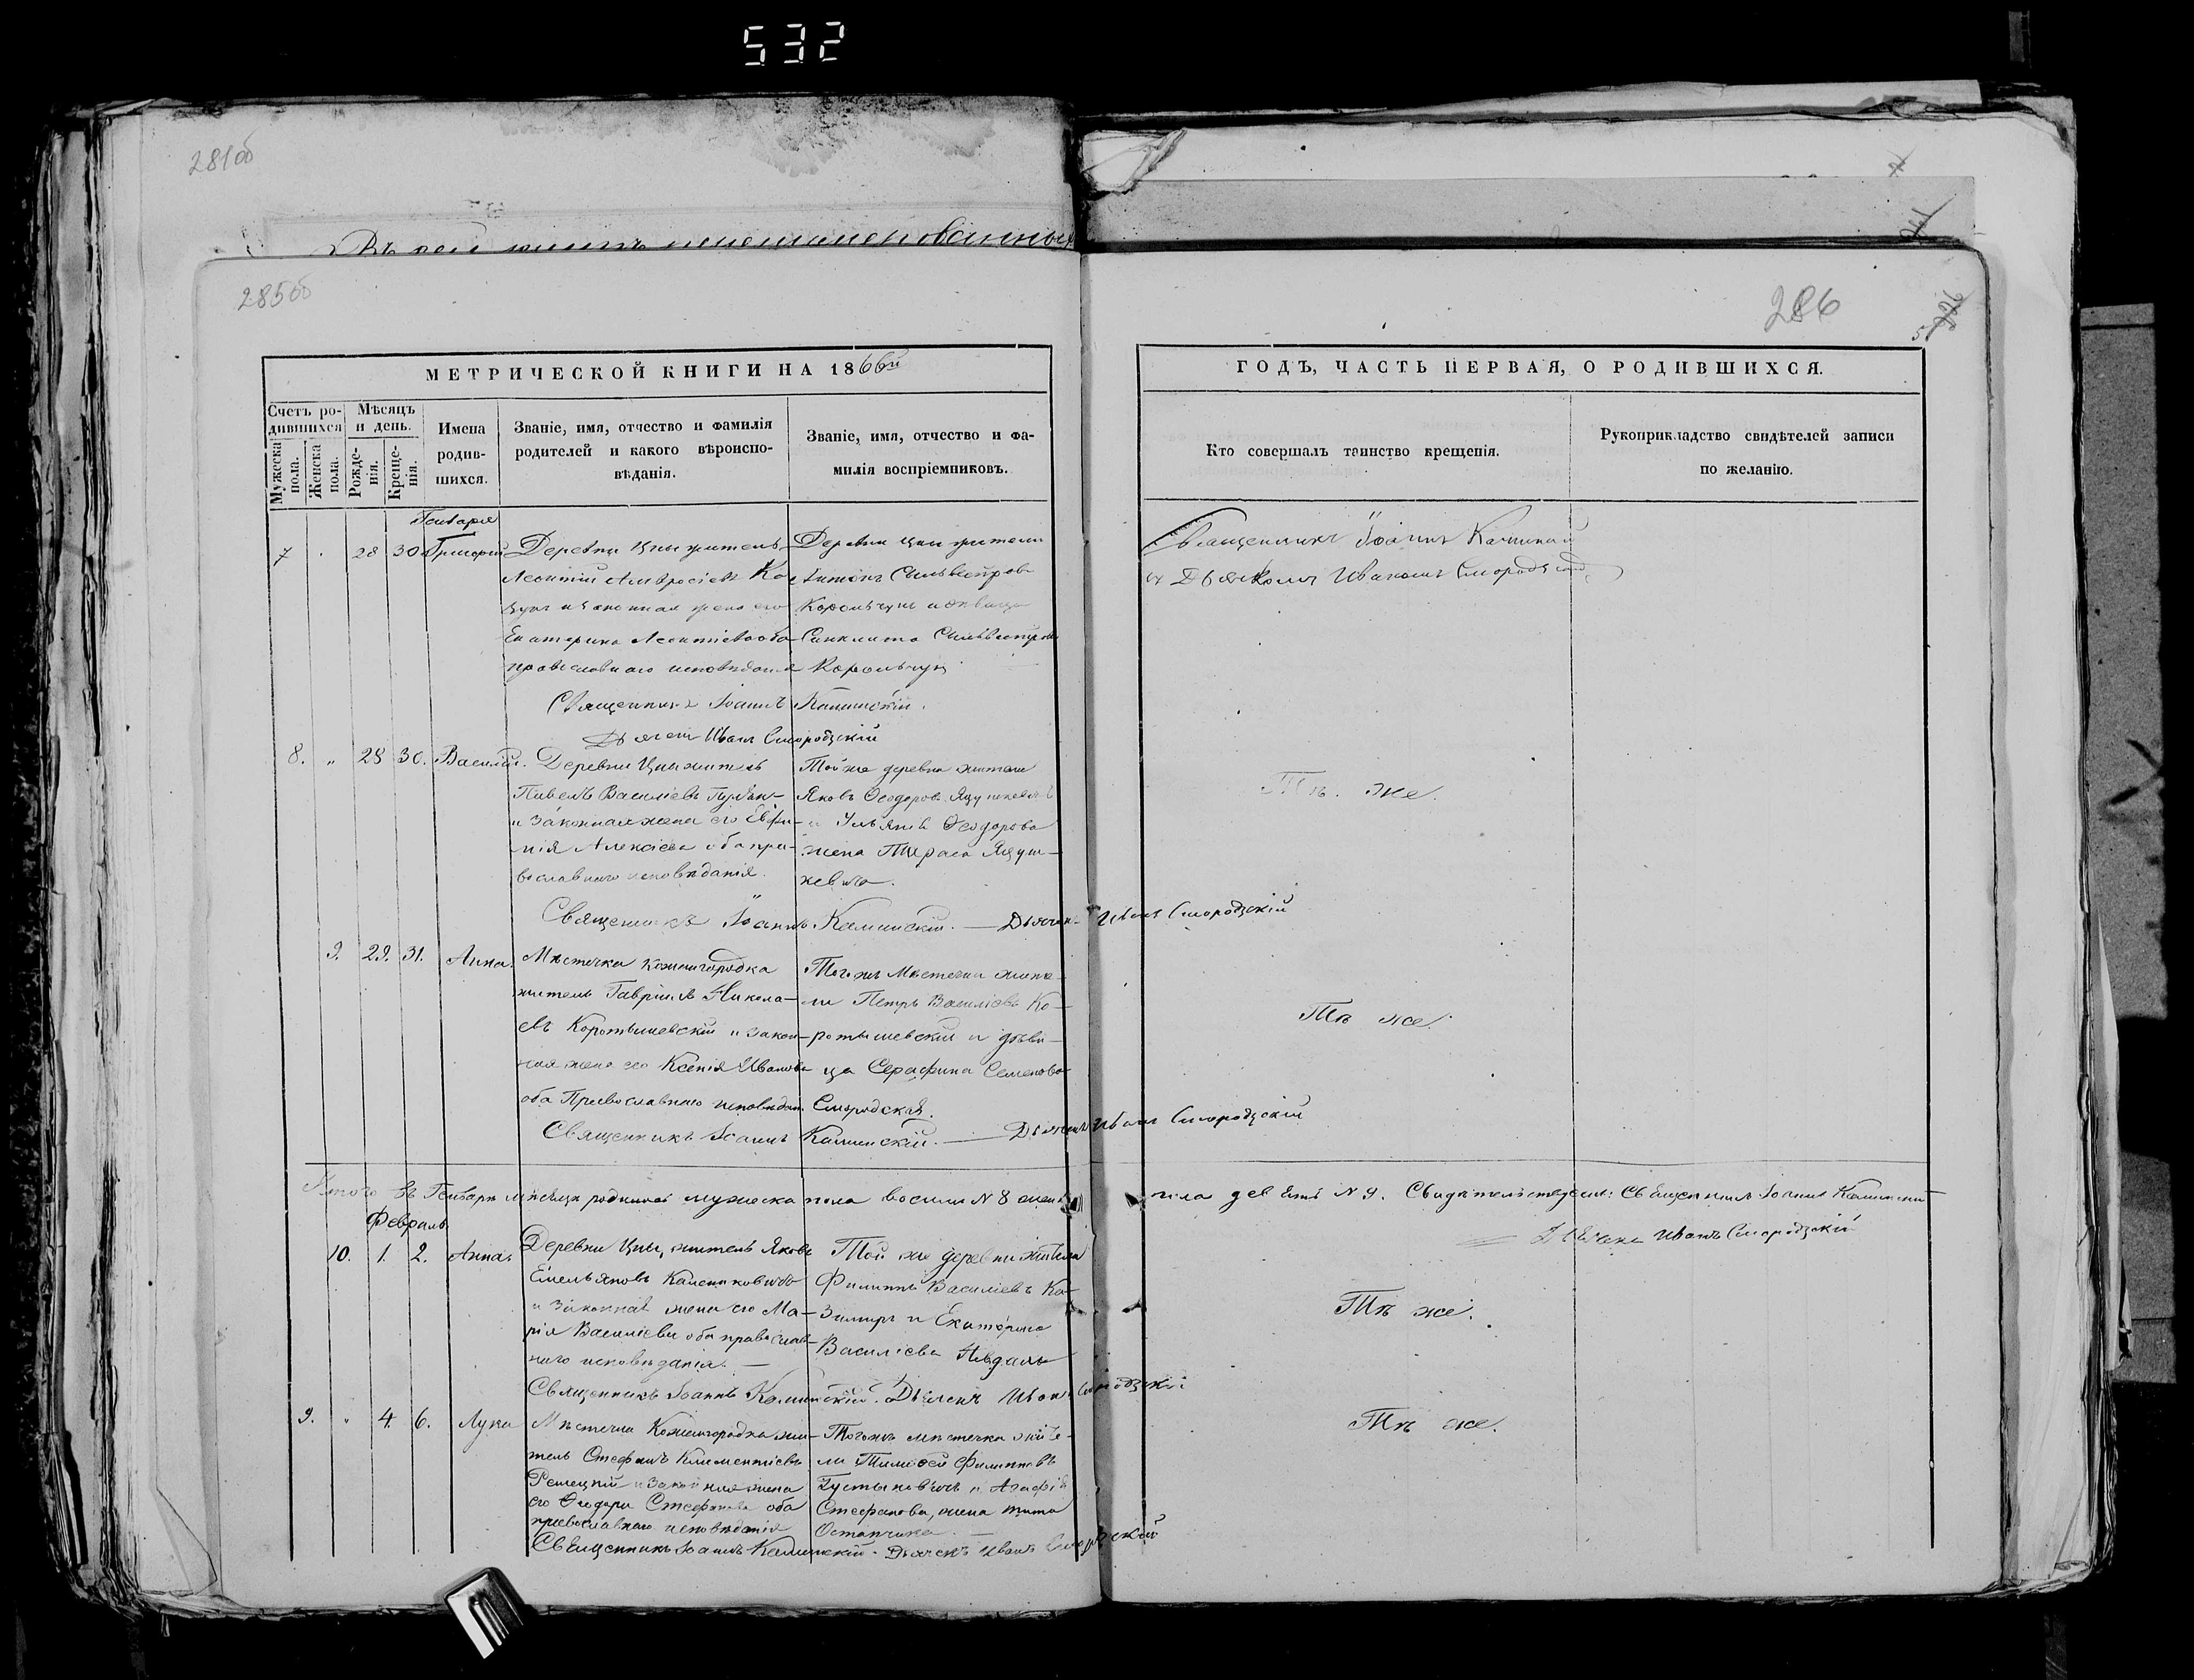 532
281об
285об
286
МЕТРИЧЕСКОЙ КНИГИ НА 1866й
ГОДЪ, ЧАСТЬ ПЕРВАЯ, О РОДИВШИХСЯ.
Счетъ ро-
дившихся
Мужеска
пола.
Женска
пола.
Мѣсяцъ
и день.
Рожде-
нія.
Креще-
нія.
Имена
родив-
шихся.
Званіе, имя, отчество и фамилія
родителей и какого вѣроиспо-
вѣданія.
Званіе, имя, отчество и фа-
милія воспріемниковъ.
Кто совершалъ таинство крещенія.
Рукоприкладство свидѣтелей записи
по желанію.
Генваря
7 28 30 Григорій
Деревни Цны житель
Леонтій Амвросіевъ Ко-
законная жена его
Екатерина Леонтіева оба
православнаго исповѣданія
Деревни Цны жители
Антонъ Сильвестровъ
Корольчукъ и дѣвица
Синклита Сильвестрова
Корольчук
Священникъ Іоаннъ Каминскій
съ Дьячкомъ Иваномъ
Священникъ Іоаннъ Каминскій.
Дьячекъ Иванъ Смородскій
8. " 28 30. Василій.
Деревни Цны житель
Павелъ Василіевъ
и законная жена его Евфи-
мія Алексіева оба пра-
вославнаго исповѣданія.
Той же деревни жители
Яковъ Ѳеодоровъ
и Ульяна Ѳеодорова
жена Тараса Яцуш-
кевича.
Тѣ же.
Священникъ Іоаннъ Каминскій. — Дьячекъ Иванъ Смородскій
9. 29. 31. Анна.
Мѣстечка Кожангородка
житель Гавріилъ Никола-
евъ Коротышевскій и закон-
ная жена его Ксенія Иванова
оба Православнаго исповѣдан.
Тогожъ Мѣстечка жите-
ли Петръ Василіевъ Ко-
ротышевскій и дѣви-
ца Серафима Семенова
Смородская.
Тѣ же.
Священникъ Іоаннъ Каминскій. — Дьячекъ Иванъ Смородскій
Итого въ Генварѣ мѣсяцѣ родилось мужеска пола восемь N 8 женска пола девять N 9. Свидѣтельствуемъ: Священникъ Іоаннъ Каминскій
Дьячекъ Иванъ Смородскій
Февраль
10. 1. 2. Анна.
Деревни Цны, житель Яковъ
Емельяновъ Калениковичъ
и законная жена его Ма-
рія Василіева оба православ-
наго исповѣданія. —
Той же деревни жители
Филиппъ Василіевъ Ка-
зимиръ и Екатерина
Василіева
Тѣ же.
Священникъ Іоаннъ Каминскій. Дьячекъ Иванъ Смородскій
9. " 4. 6. Лука
Мѣстечка Кожангородка жи-
тель Стефанъ Климентіевъ
Ремецкій и законная жена
его Ѳеодора Стефанова оба
православнаго исповѣданія
Тогожъ мѣстечка жите-
ли Тимоѳей Филипповъ
Густыновичъ и Агафія
Стефанова, жена Тита
Остапчика. —
Тѣ же.
Священникъ Іоаннъ Каминскій. Дьячекъ Иванъ Смородскій